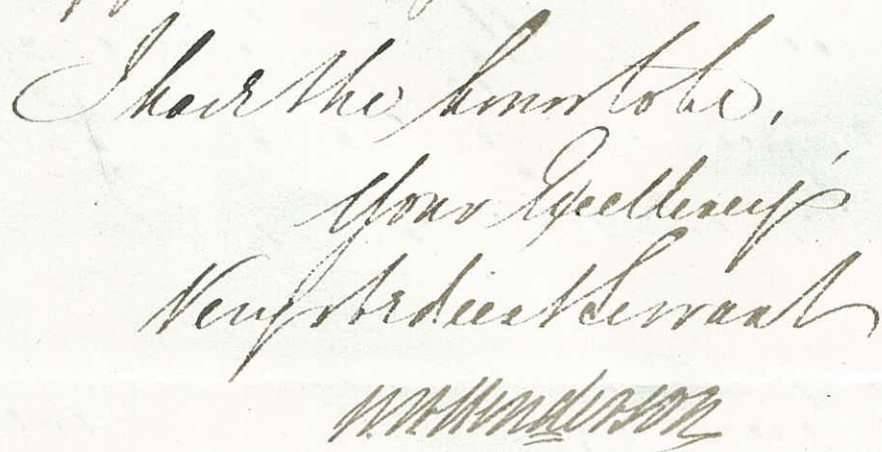 I have the honor to be,
Your Excellency's
Very obedient Servant
Henderson